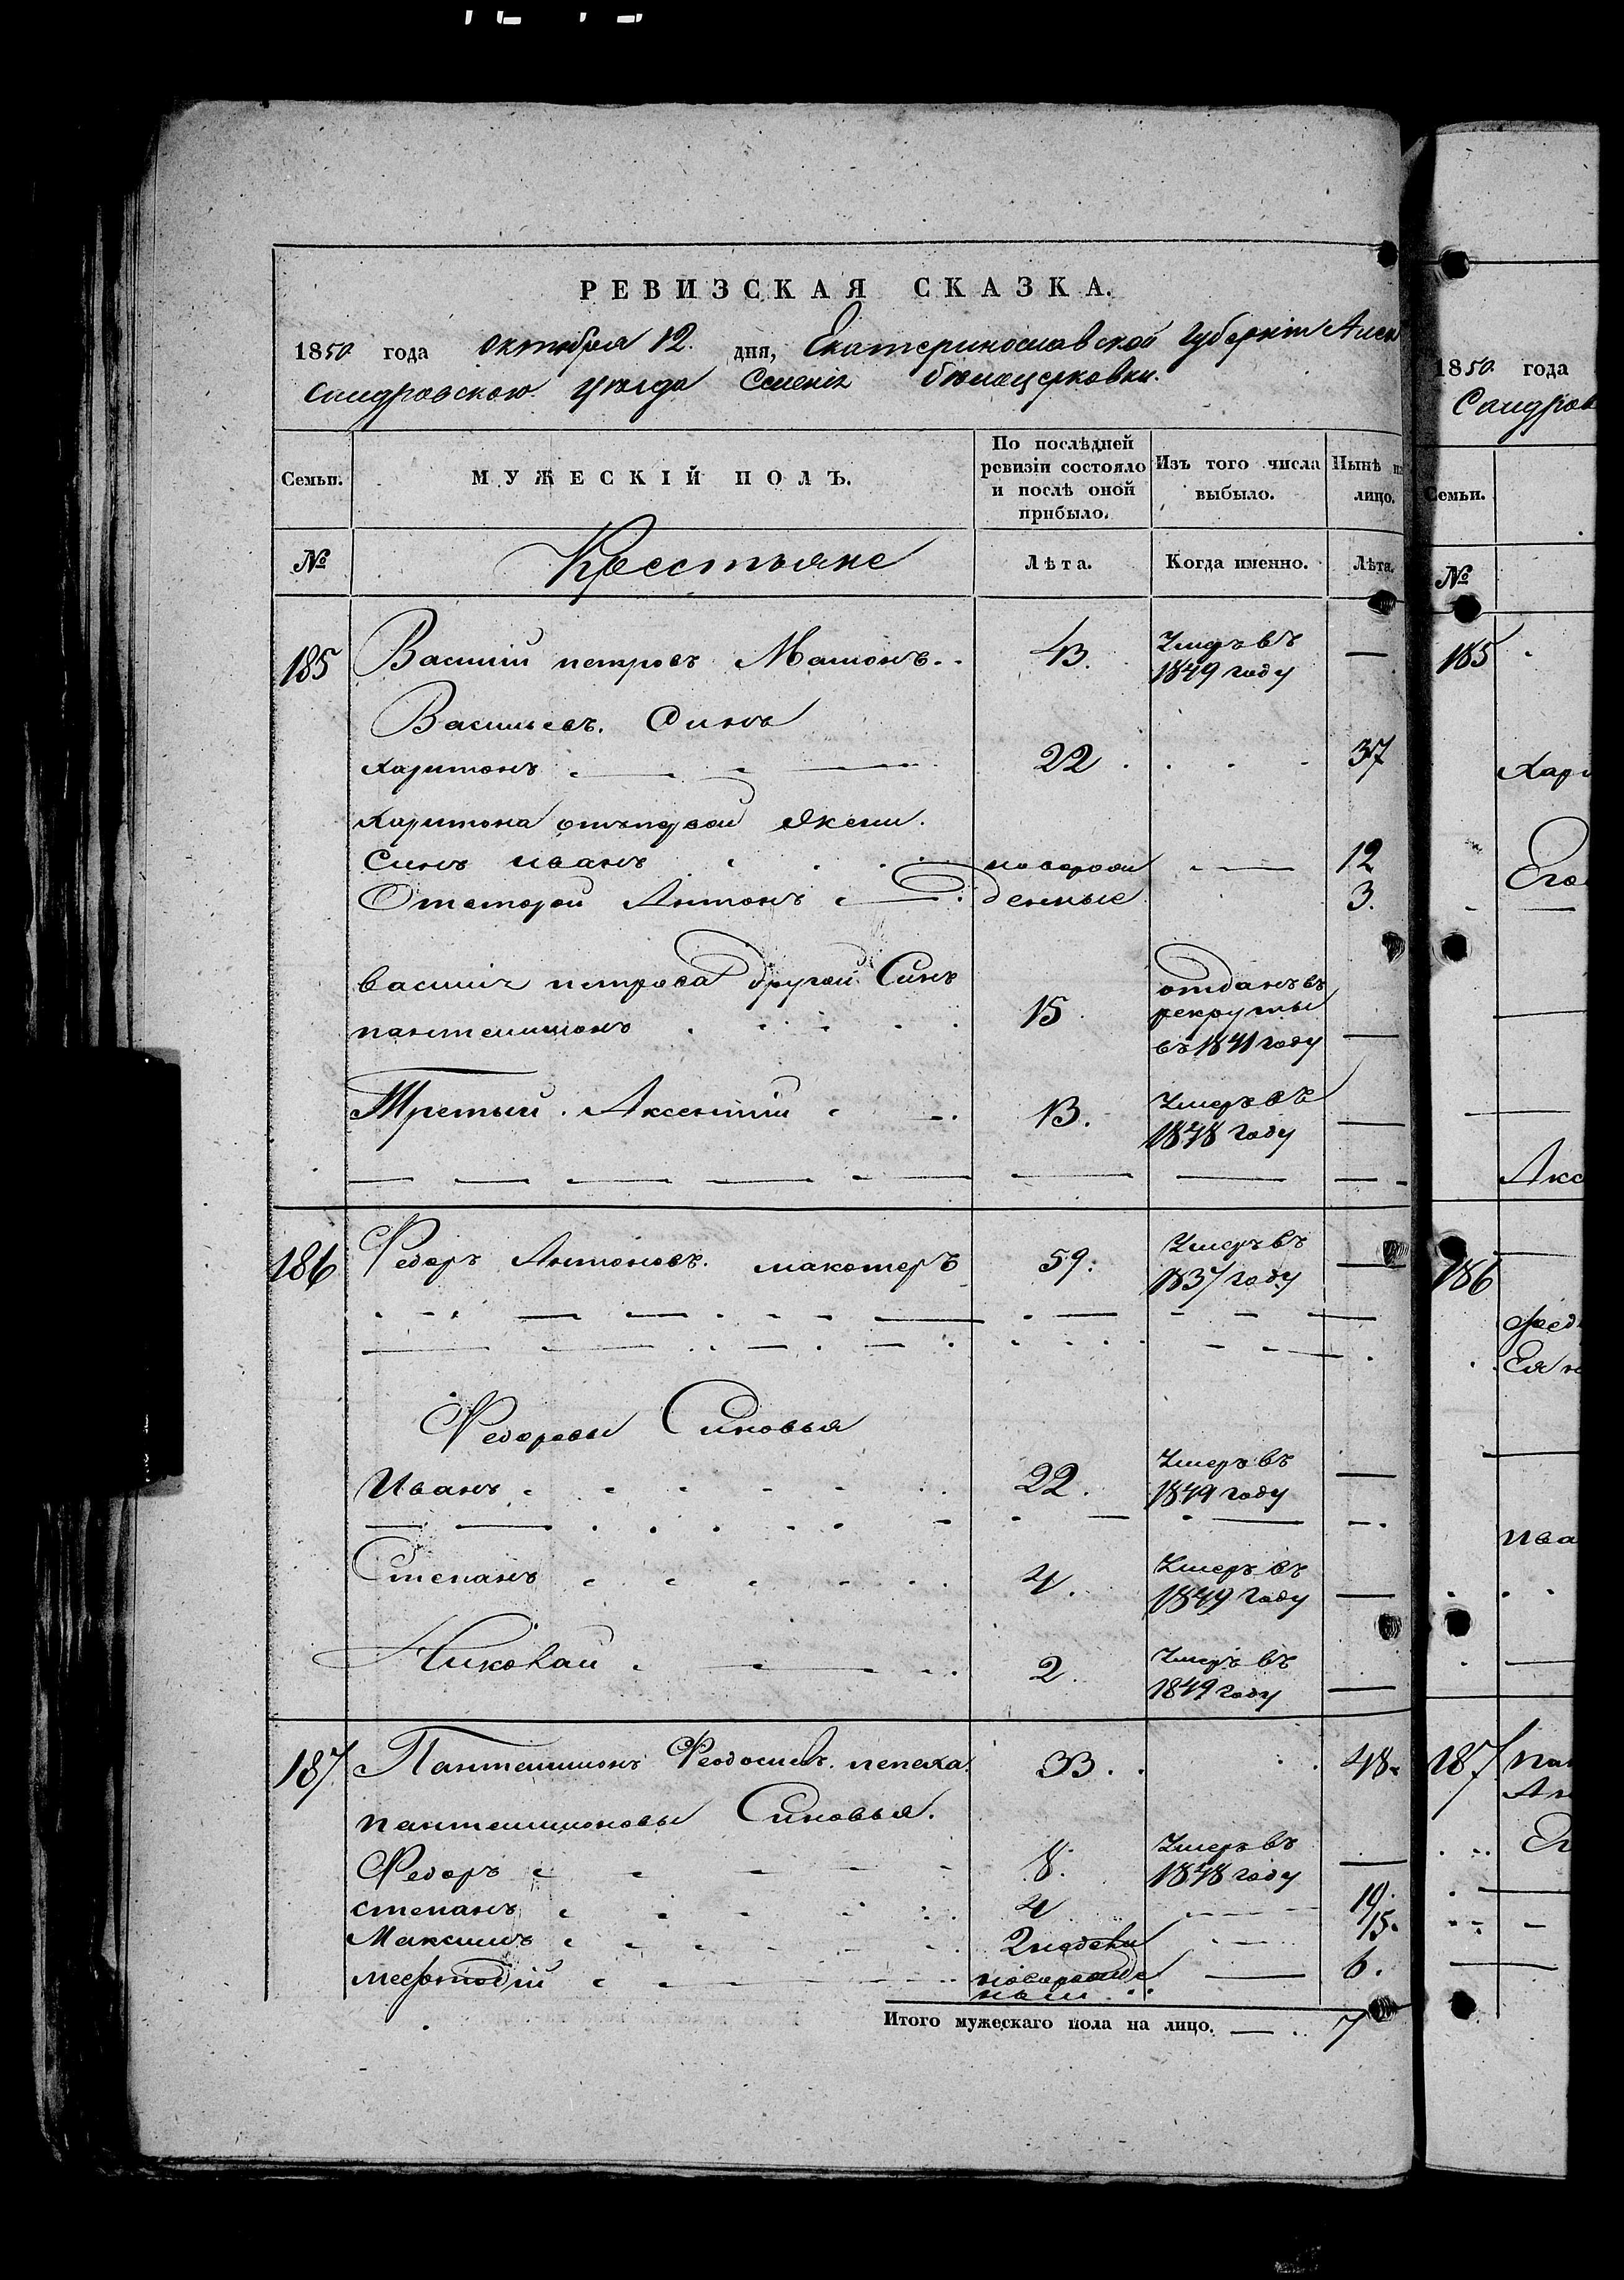 РЕВИЗСКАЯ СКАЗКА.
1850 года октября 12. дня, Екатеринославской губернiи Алек
сандровского уѣзда Селенiя бѣлацерковки.
Семьи. МУЖЕСКІЙ ПОЛЪ. По послѣдней ревизіи состояло и послѣ оной прибыло. Изъ того числа выбыло. Нынѣ на лицо.
№ Кресстьяне Лѣта. Когда именно. Лѣта.
185 Василiй петровъ 43. Умеръ въ
1849 году —
Васильевъ. Синъ
харитонъ 22. 37
харитона отъпервой
Синъ иванъ новорож 12
Отвторой Антонъ денные 3.
василiя петрова другой Синъ
пантелимонъ 15 отданъ въ
рекруты
въ 1841 году —
Третый. Аксентiй 13. Умеръ въ
1848 году —
186 Федоръ Антоновъ. макотеръ 59. Умеръ въ
1837 году —
Федоровы Синовья
Иванъ 22. Умеръ въ
1849 году —
Степанъ 4. Умеръ въ
1849 году —
Николай 2. Умеръ въ
1849 году —
187. Пантелимонъ Феодосiевъ. пепеха 33. 48.
пантелимоновы Синовья.
Федоръ 8. Умеръ въ
1848 году —
степанъ 4 19.
Максимъ 2 недели 15.
мефтодiй новорожде 6.
Итого мужескаго пола на лицо. — 7
1850 года
Сандров
Семьи.
№
185
Хари
Его
Аксе
186
федо
Ея
ива
187 пан
Ан
Ег